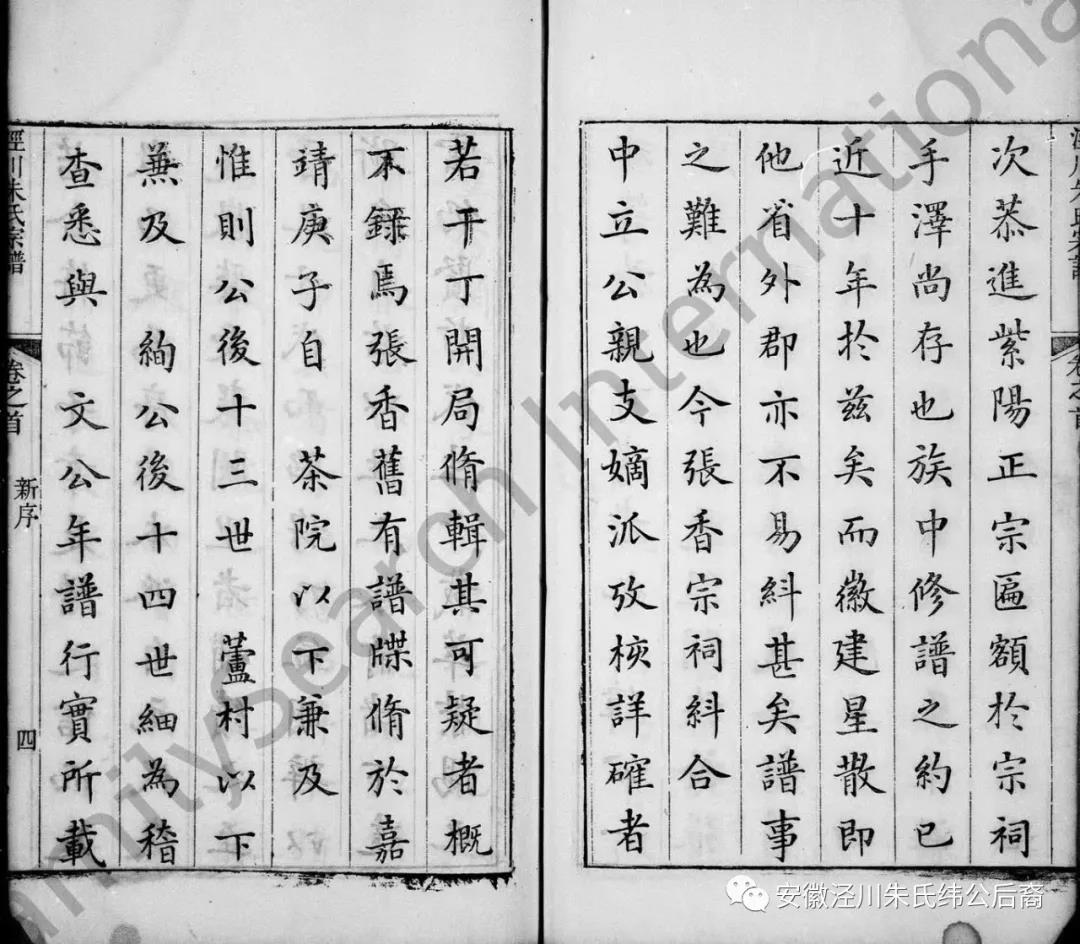 次恭進紫陽正宗匾額於宗祠
手澤尚存也族中修譜之約已
近十年於茲矣而徽建星散即
他省外郡亦不易糾甚矣譜事
之難為也今張香宗祠糾合
中立公親支嫡派攷核詳確者
若干丁開局脩輯其可疑者概
不錄焉張香舊有譜牒脩於嘉
靖庚子自 茶院以下兼及
惟則公後十三世 蘆村以下
兼及 絢公後十四世細為稽
查悉與 文公年譜行實所載
涇川朱氏宗譜
卷之首
新序
四
FamilySearch International
安徽泾川朱氏纬公后裔